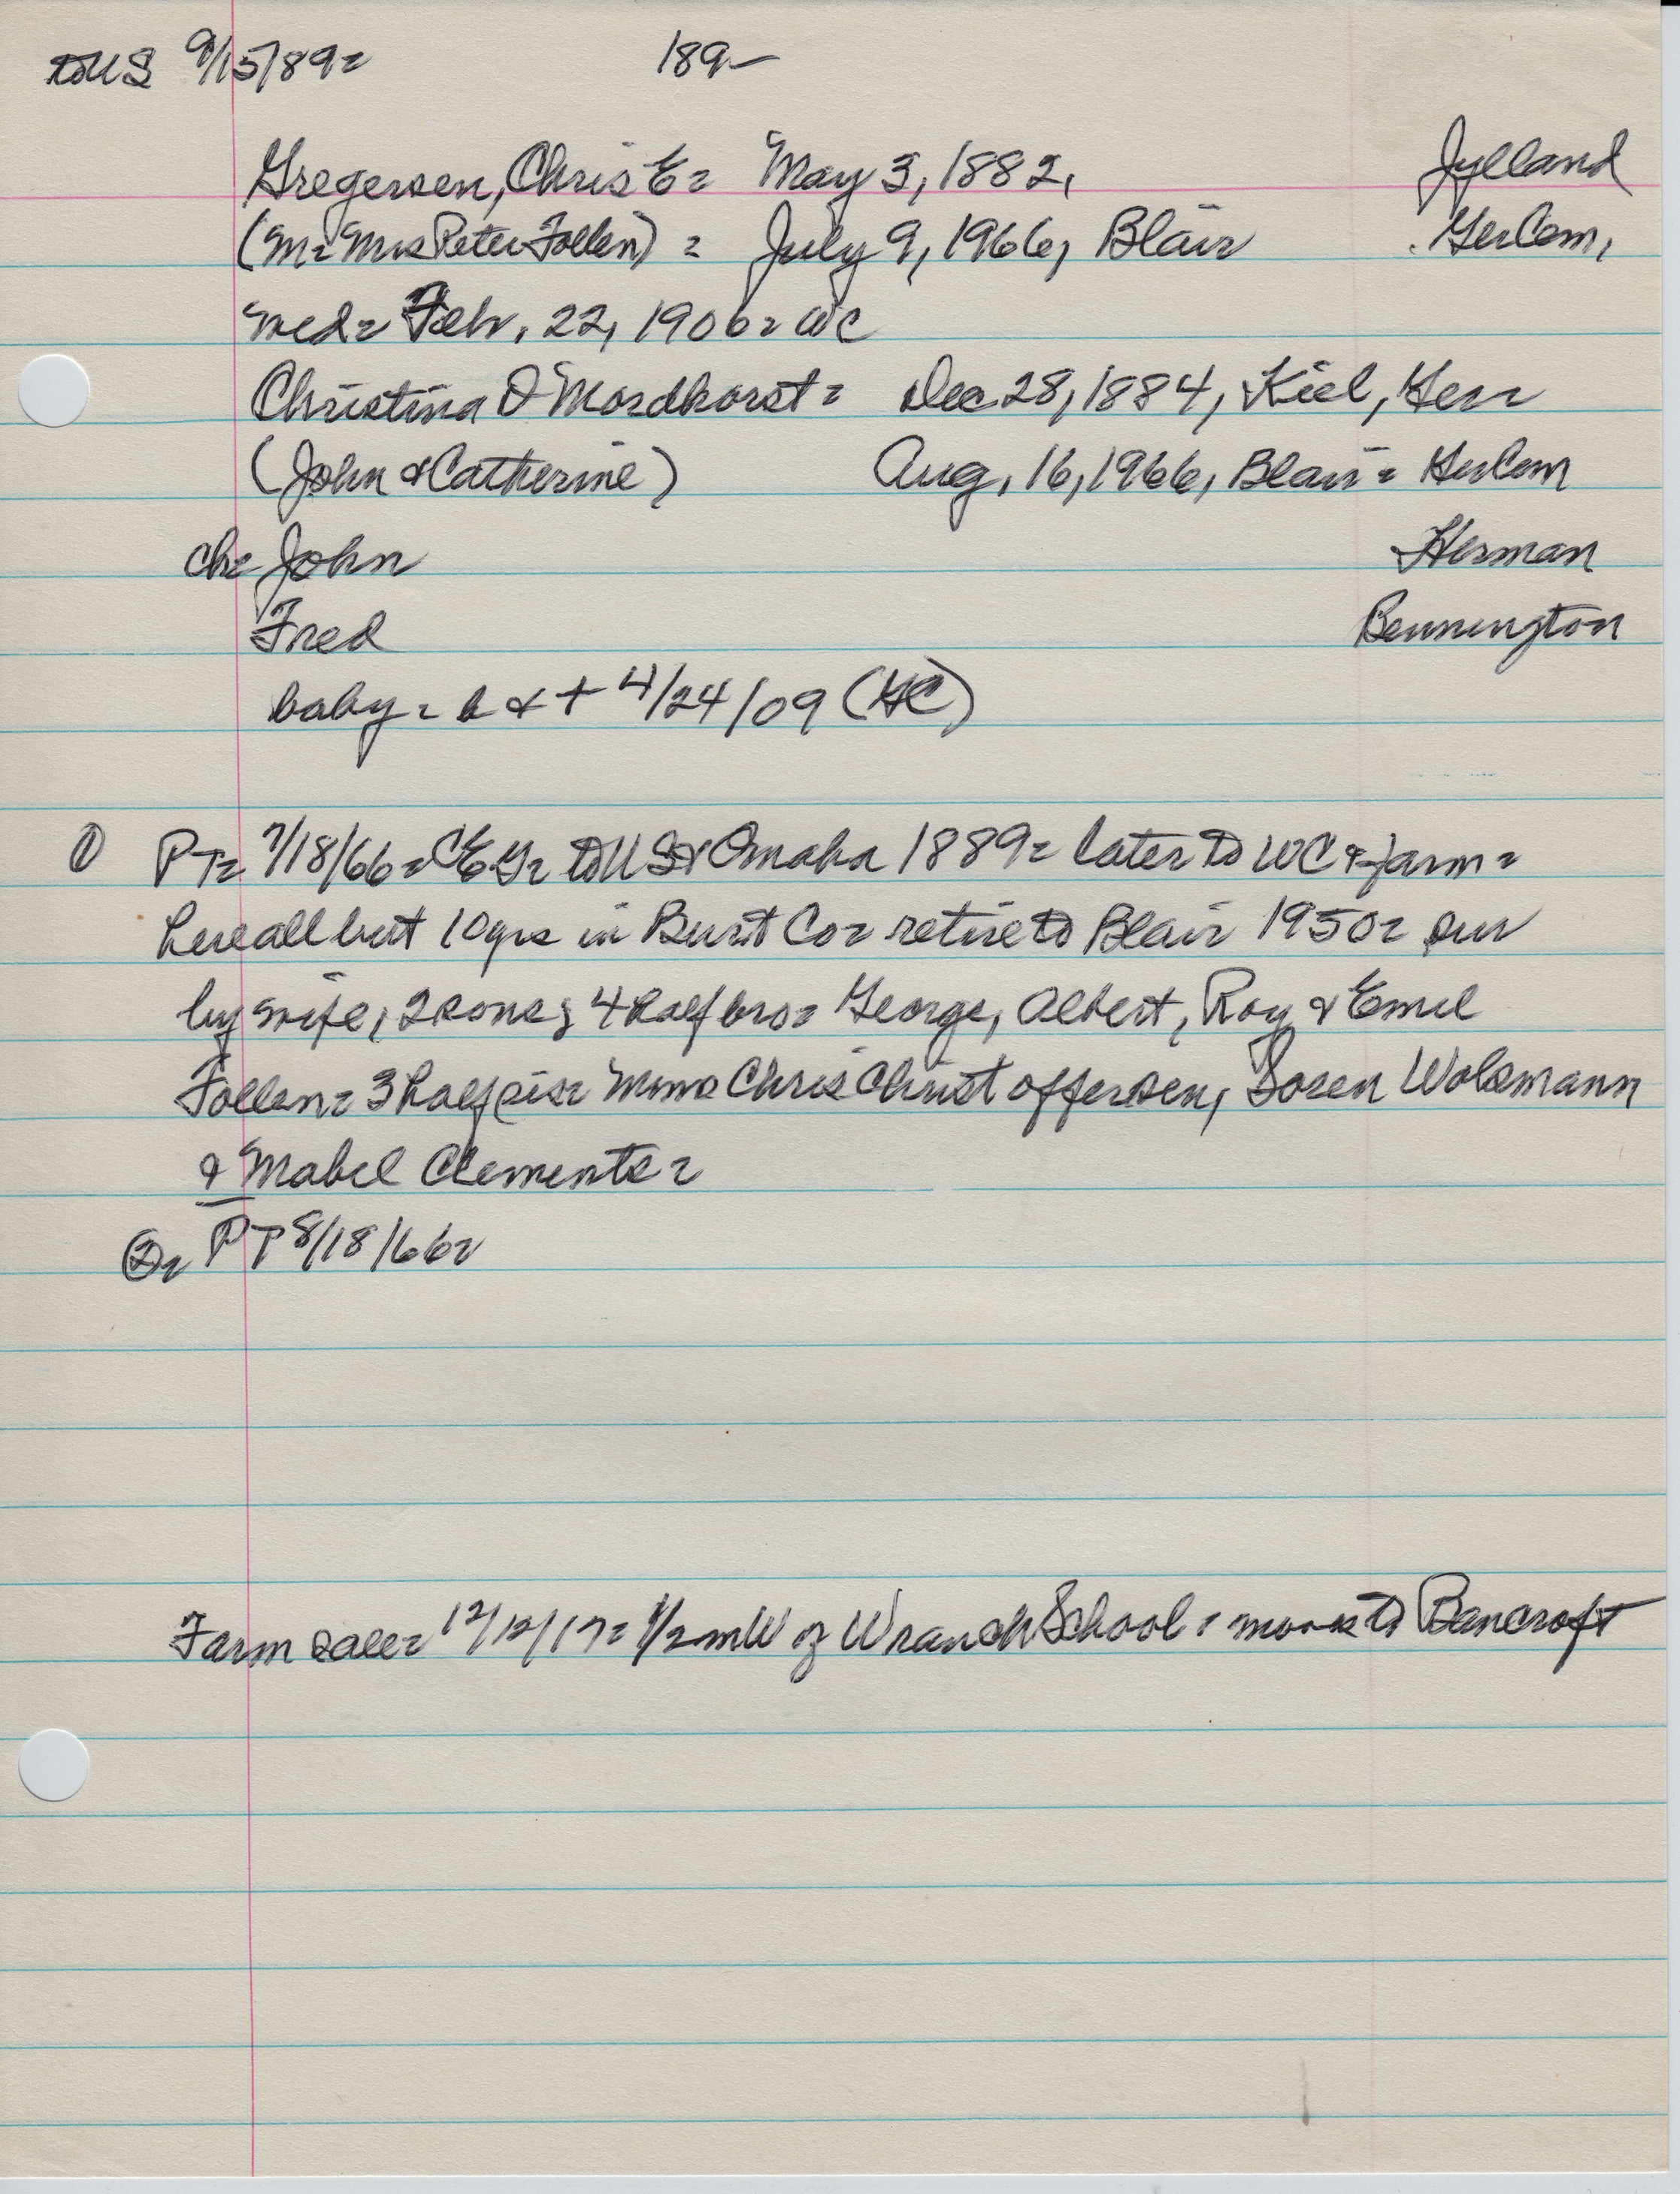 to US 9/15/89= 189-
Gregersen, Chris E= May 3, 1882, Jylland
(M= Mrs Peter Follen) = July 9, 1966, Blair GerCem,
med= Febr. 22, 1906= WC
Christina D Mordhorst= Dec 28, 1884, Kiel, Ger=
(John & Catherine) Aug, 16, 1966, Blair= GerCem
ch= John Herman
Fred Bennington
baby= b & + 4/24/09 (HC)
① PT= 7/18/66= CEG= to US & Omaha 1889= later to WC & farm=
here all but 10 yrs in Burt Co= retire to Blair 1950= sur
by wife, 2 sons; 4 half bro= George, Albert, Roy & Emil
Follen= 3 half sis= Mmes Chris Christoffersen, Soren Wolsmann
& Mabel Clements=
②= PT 8/18/66=
Farm sale= 12/12/17= 1/2 m W of W School= move to Bancroft